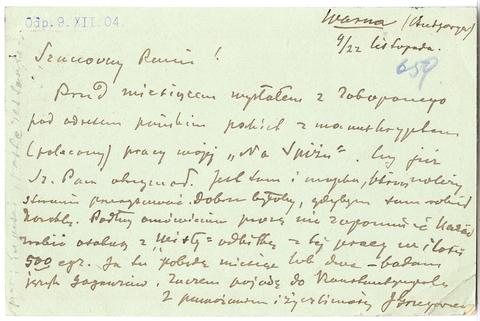 Odp. 9. XII. 04.
Warna (Bułgarya)
9/22 listopada.
659
Szanowny Panie!
Przed miesiącem wysłałem z Zakopanego
pod adresem pańskim pakiet z manuskryptem
(polecony) pracy mojej „Na Spiżu". Czy już
Sz. Pan otrzymał. Jest tam i mapka, którą należy
starannie przerysować. Dobrze byłoby, gdybym sam robił
korektę. Podług omówienia proszę nie zapomnieć kazać
zrobić osobną odbitkę z tej pracy w ilości
500 egz. Ja tu pobędę miesiąc lub dwa – badam
język Gagauzów, zaczem pojadę do Konstantynopola
Z poważaniem i życzliwością